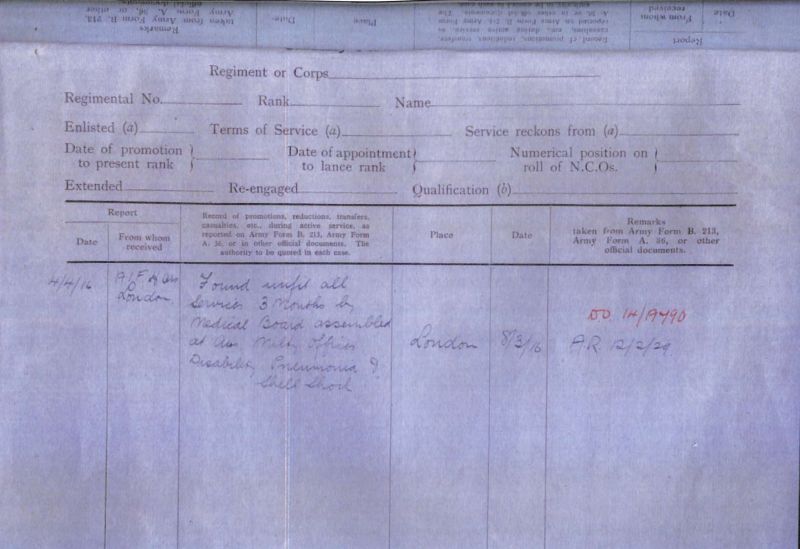 Remarks
taken from Army Form B. 213,
Army Form A. 36, or other
official documents.
Date
Place
Record of promotions, reductions, transfers,
casualties, etc., during active service, as
reported on Army Form B. 213, Army Form
A. 36, or in other official documents. The
Report
From whom
received
Date
Regiment or Corps
Regimental No. Rank Name
Enlisted (a) Terms of Service (a) Service reckons from (a)
Date of promotion to present rank
Date of appointment to lance rank
Numerical position on roll of N.C.Os.
Extended Re-engaged Qualification (b)
Report
Date
From whom
received
Record of promotions, reductions, transfers,
casualties, etc., during active service, as
reported on Army Form B. 213, Army Form
A. 36, or in other official documents. The
authority to be quoted in each case.
Place
Date
Remarks
taken from Army Form B. 213,
Army Form A. 36, or other
official documents.
4/4/16
London
Found unfit all
Services 3 Months by
Medical Board assembled
at Aus. Milty Offices
Disability Pneumonia &
Shell Shock
London
8/3/16
DO. 14/19790
A.R. 12/2/29